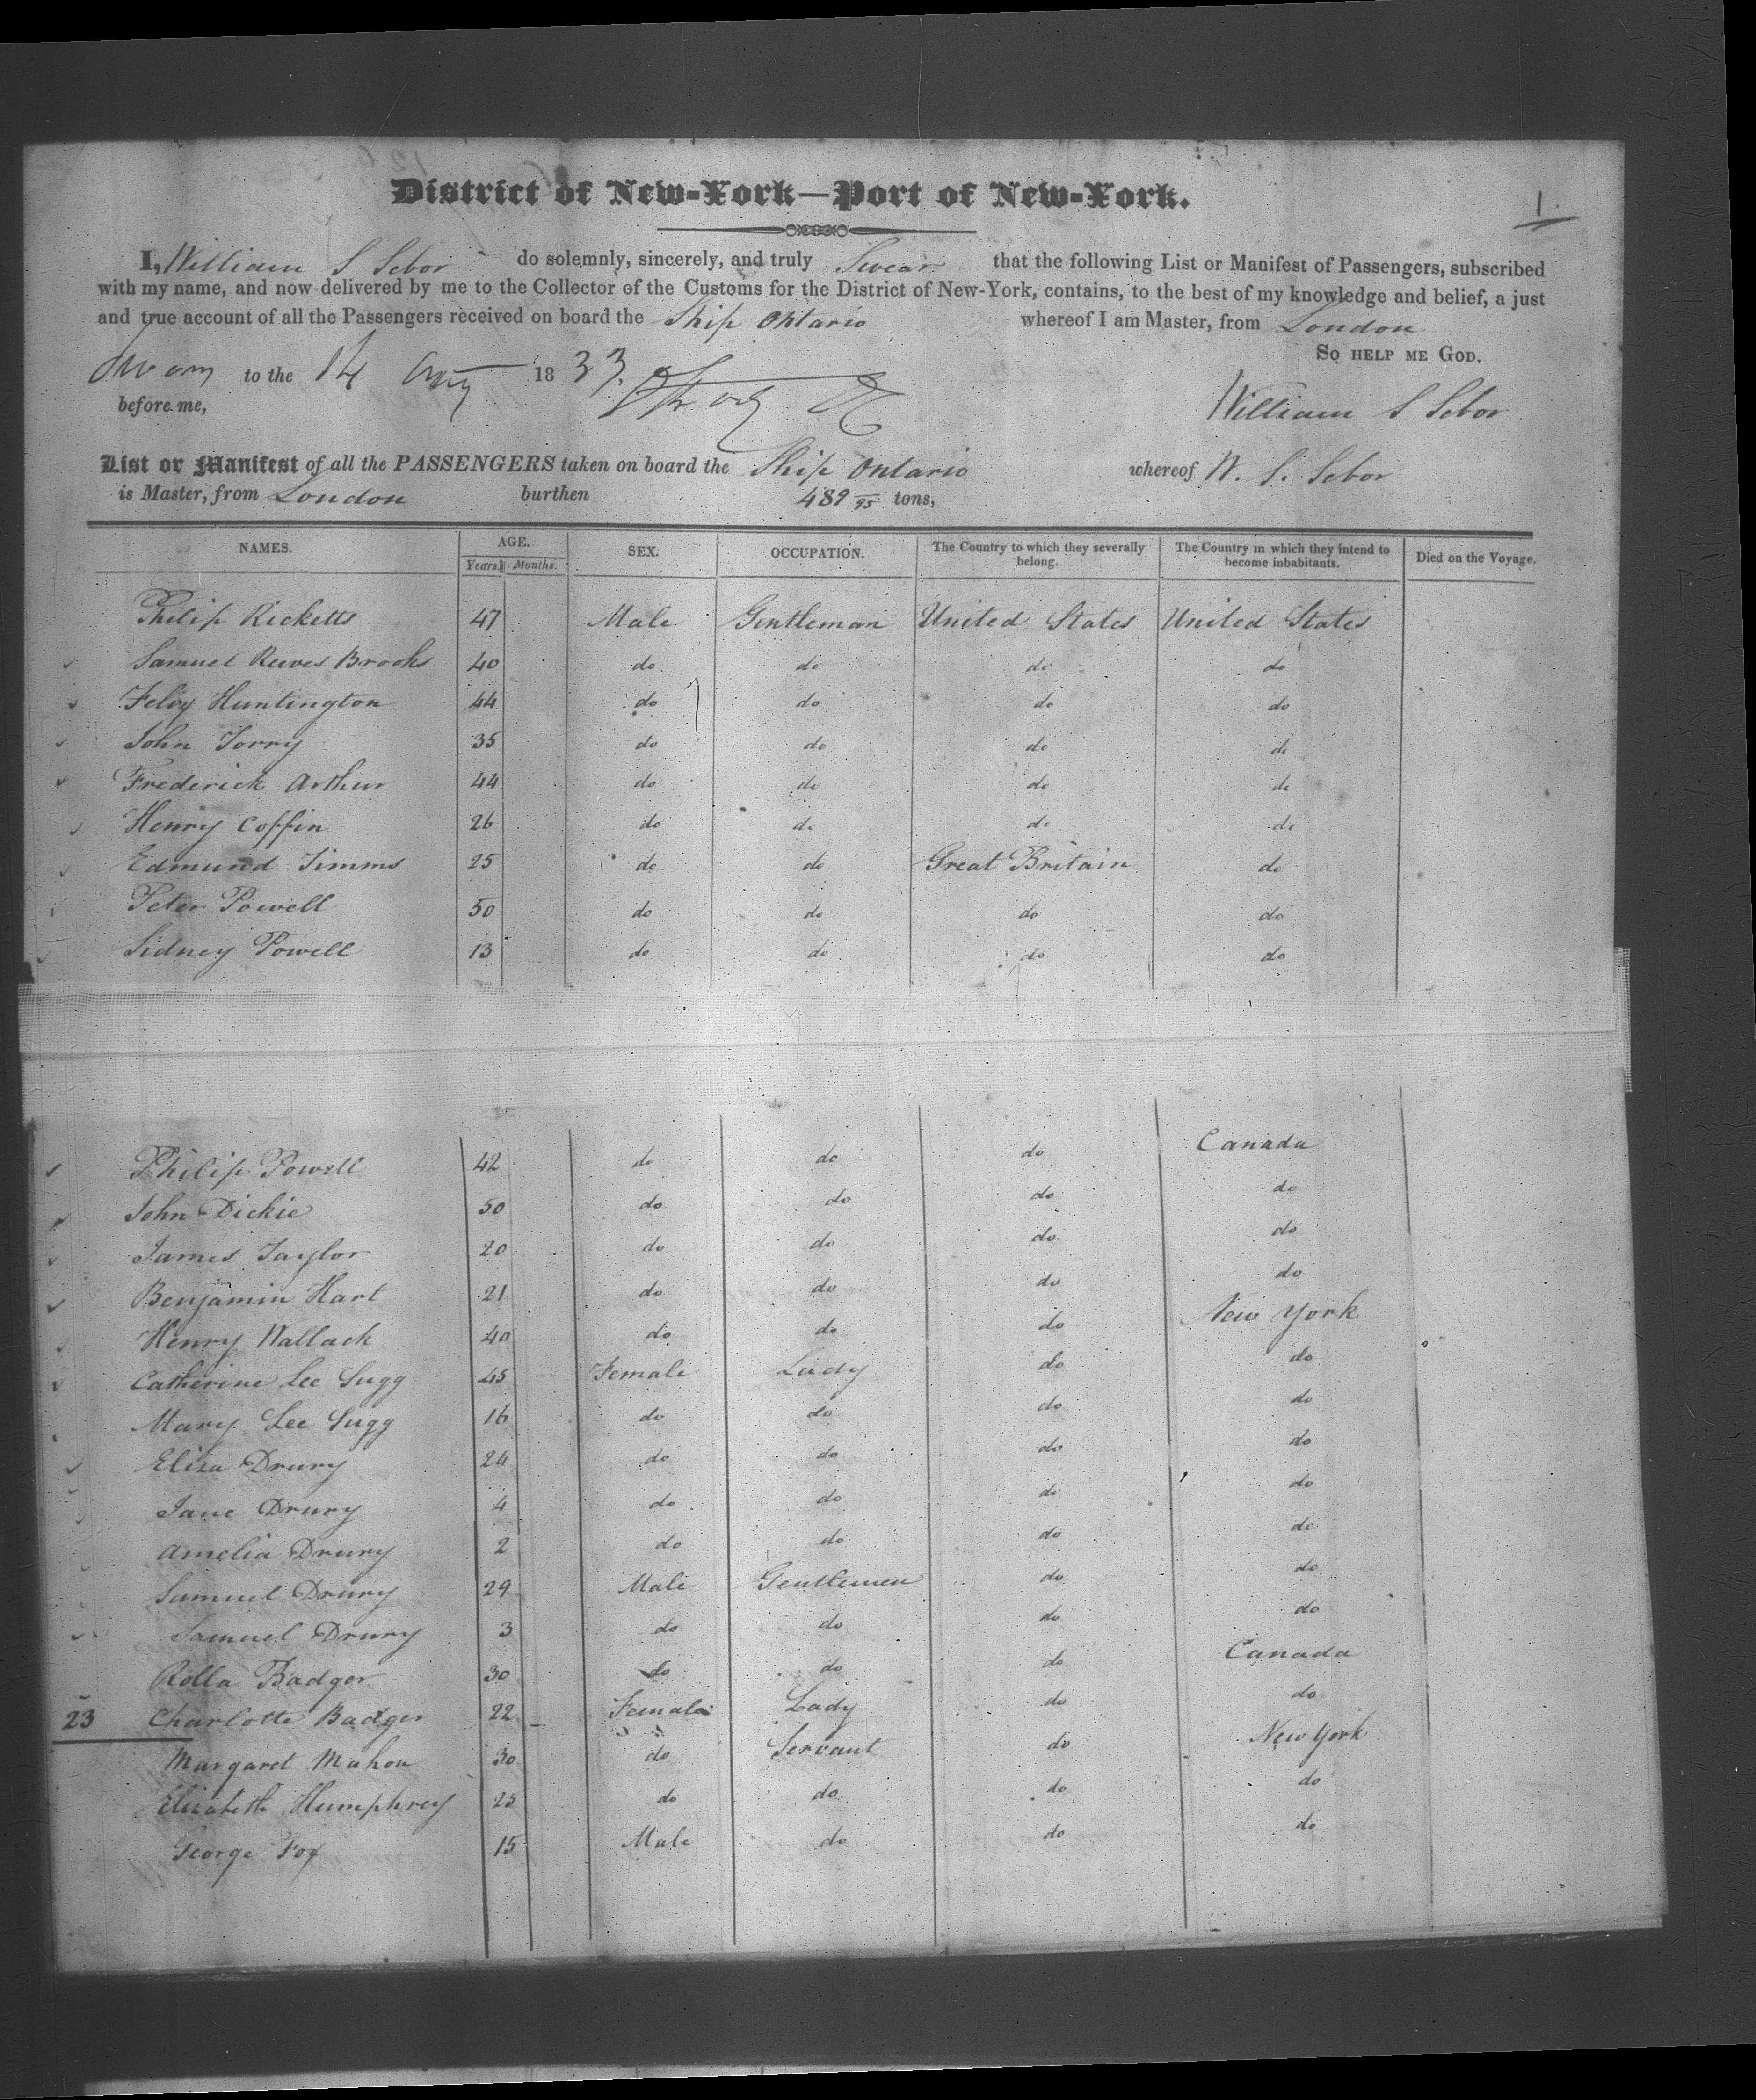 1.
District of New-York—Port of New-York.
I, William S Sebor do solemnly, sincerely, and truly Swear that the following List or Manifest of Passengers, subscribed
with my name, and now delivered by me to the Collector of the Customs for the District of New-York, contains, to the best of my knowledge and belief, a just
and true account of all the Passengers received on board the Ship Ontario whereof I am Master, from London
So help me God.
Sworn to the 14 1833.
before me,
William S Sebor
List or Manifest of all the PASSENGERS taken on board the Ship Ontario whereof W. S. Sebor
is Master, from London burthen 489 /95 tons,
NAMES. AGE. SEX. OCCUPATION. The Country to which they severally belong. The Country in which they intend to become inhabitants. Died on the Voyage.
Years. Months.
Philip Ricketts 47 Male Gentleman United States United States
Samuel Reeves Brooks 40 do do do do
Felix Huntington 44 do do do do
John Torry 35 do do do do
Frederick Arthur 44 do do do do
Henry Coffin 26 do do do do
Edmund Timms 25 do do Great Britain do
Peter Powell 50 do do do do
Sidney Powell 13 do do do do
Philip Powell 42 do do do Canada
John Dickie 50 do do do do
James Taylor 20 do do do do
Benjamin Hart 21 do do do do
Henry Wallack 40 do do do New York
Catherine Lee Sugg 45 Female Lady do do
Mary Lee Sugg 16 do do do do
Eliza Drury 24 do do do do
Jane Drury 4 do do do do
Amelia Drury 2 do do do do
Samuel Drury 29 Male Gentlemen do do
Samuel Drury 3 do do do do
Rolla Badger 30 do do do Canada
23 Charlotte Badger 22 Female Lady do do
Margaret Mahon 30 do Servant do New York
Elizabeth Humphrey 25 do do do do
George Fox 15 Male do do do